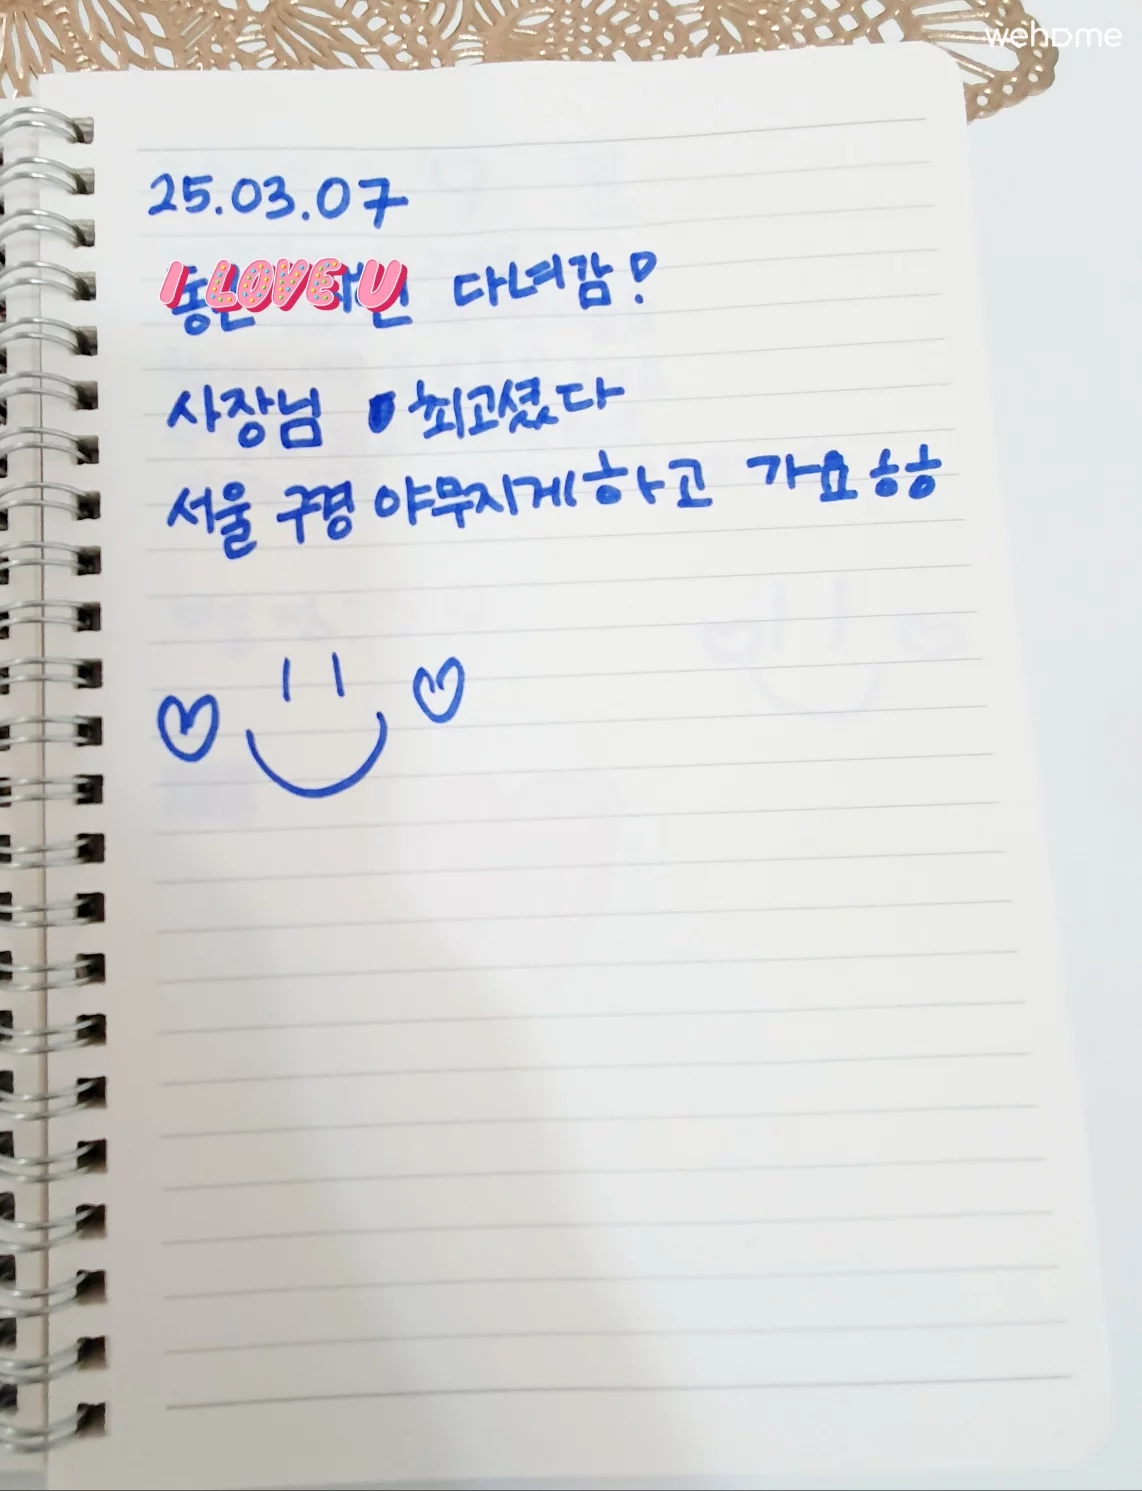 wehome
25.03.07
I LOVE U 다녀감?
사장님 최고셨다
서울 구경 야무지게 하고 가요ㅎㅎ